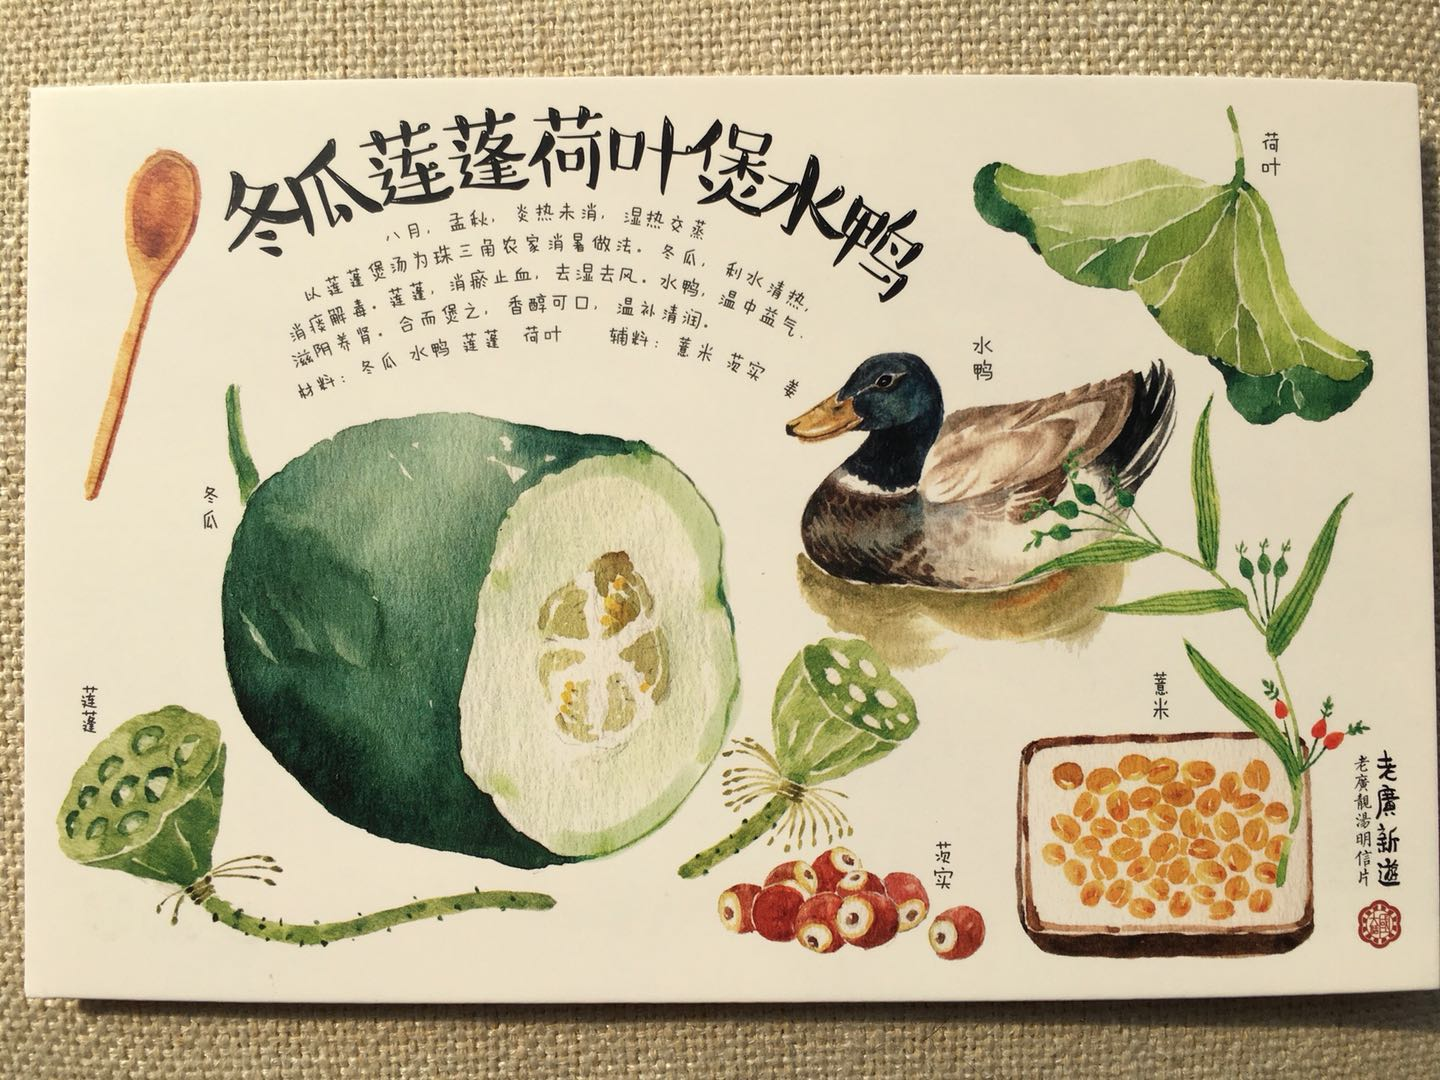 冬瓜莲蓬荷叶煲水鸭
八月，孟秋，炎热未消，湿热交蒸
以莲蓬煲汤为珠三角农家消暑做法。冬瓜，利水清热，
消痰解毒。莲蓬，消瘀止血，去湿去风。水鸭，温中益气，
滋阴养肾。合而煲之，香醇可口，温补清润。
材料：冬瓜 水鸭 莲蓬 荷叶 辅料：薏米 茨实 姜
荷叶
水鸭
冬瓜
莲蓬
薏米
茨实
老廣新遊
老廣靚湯明信片